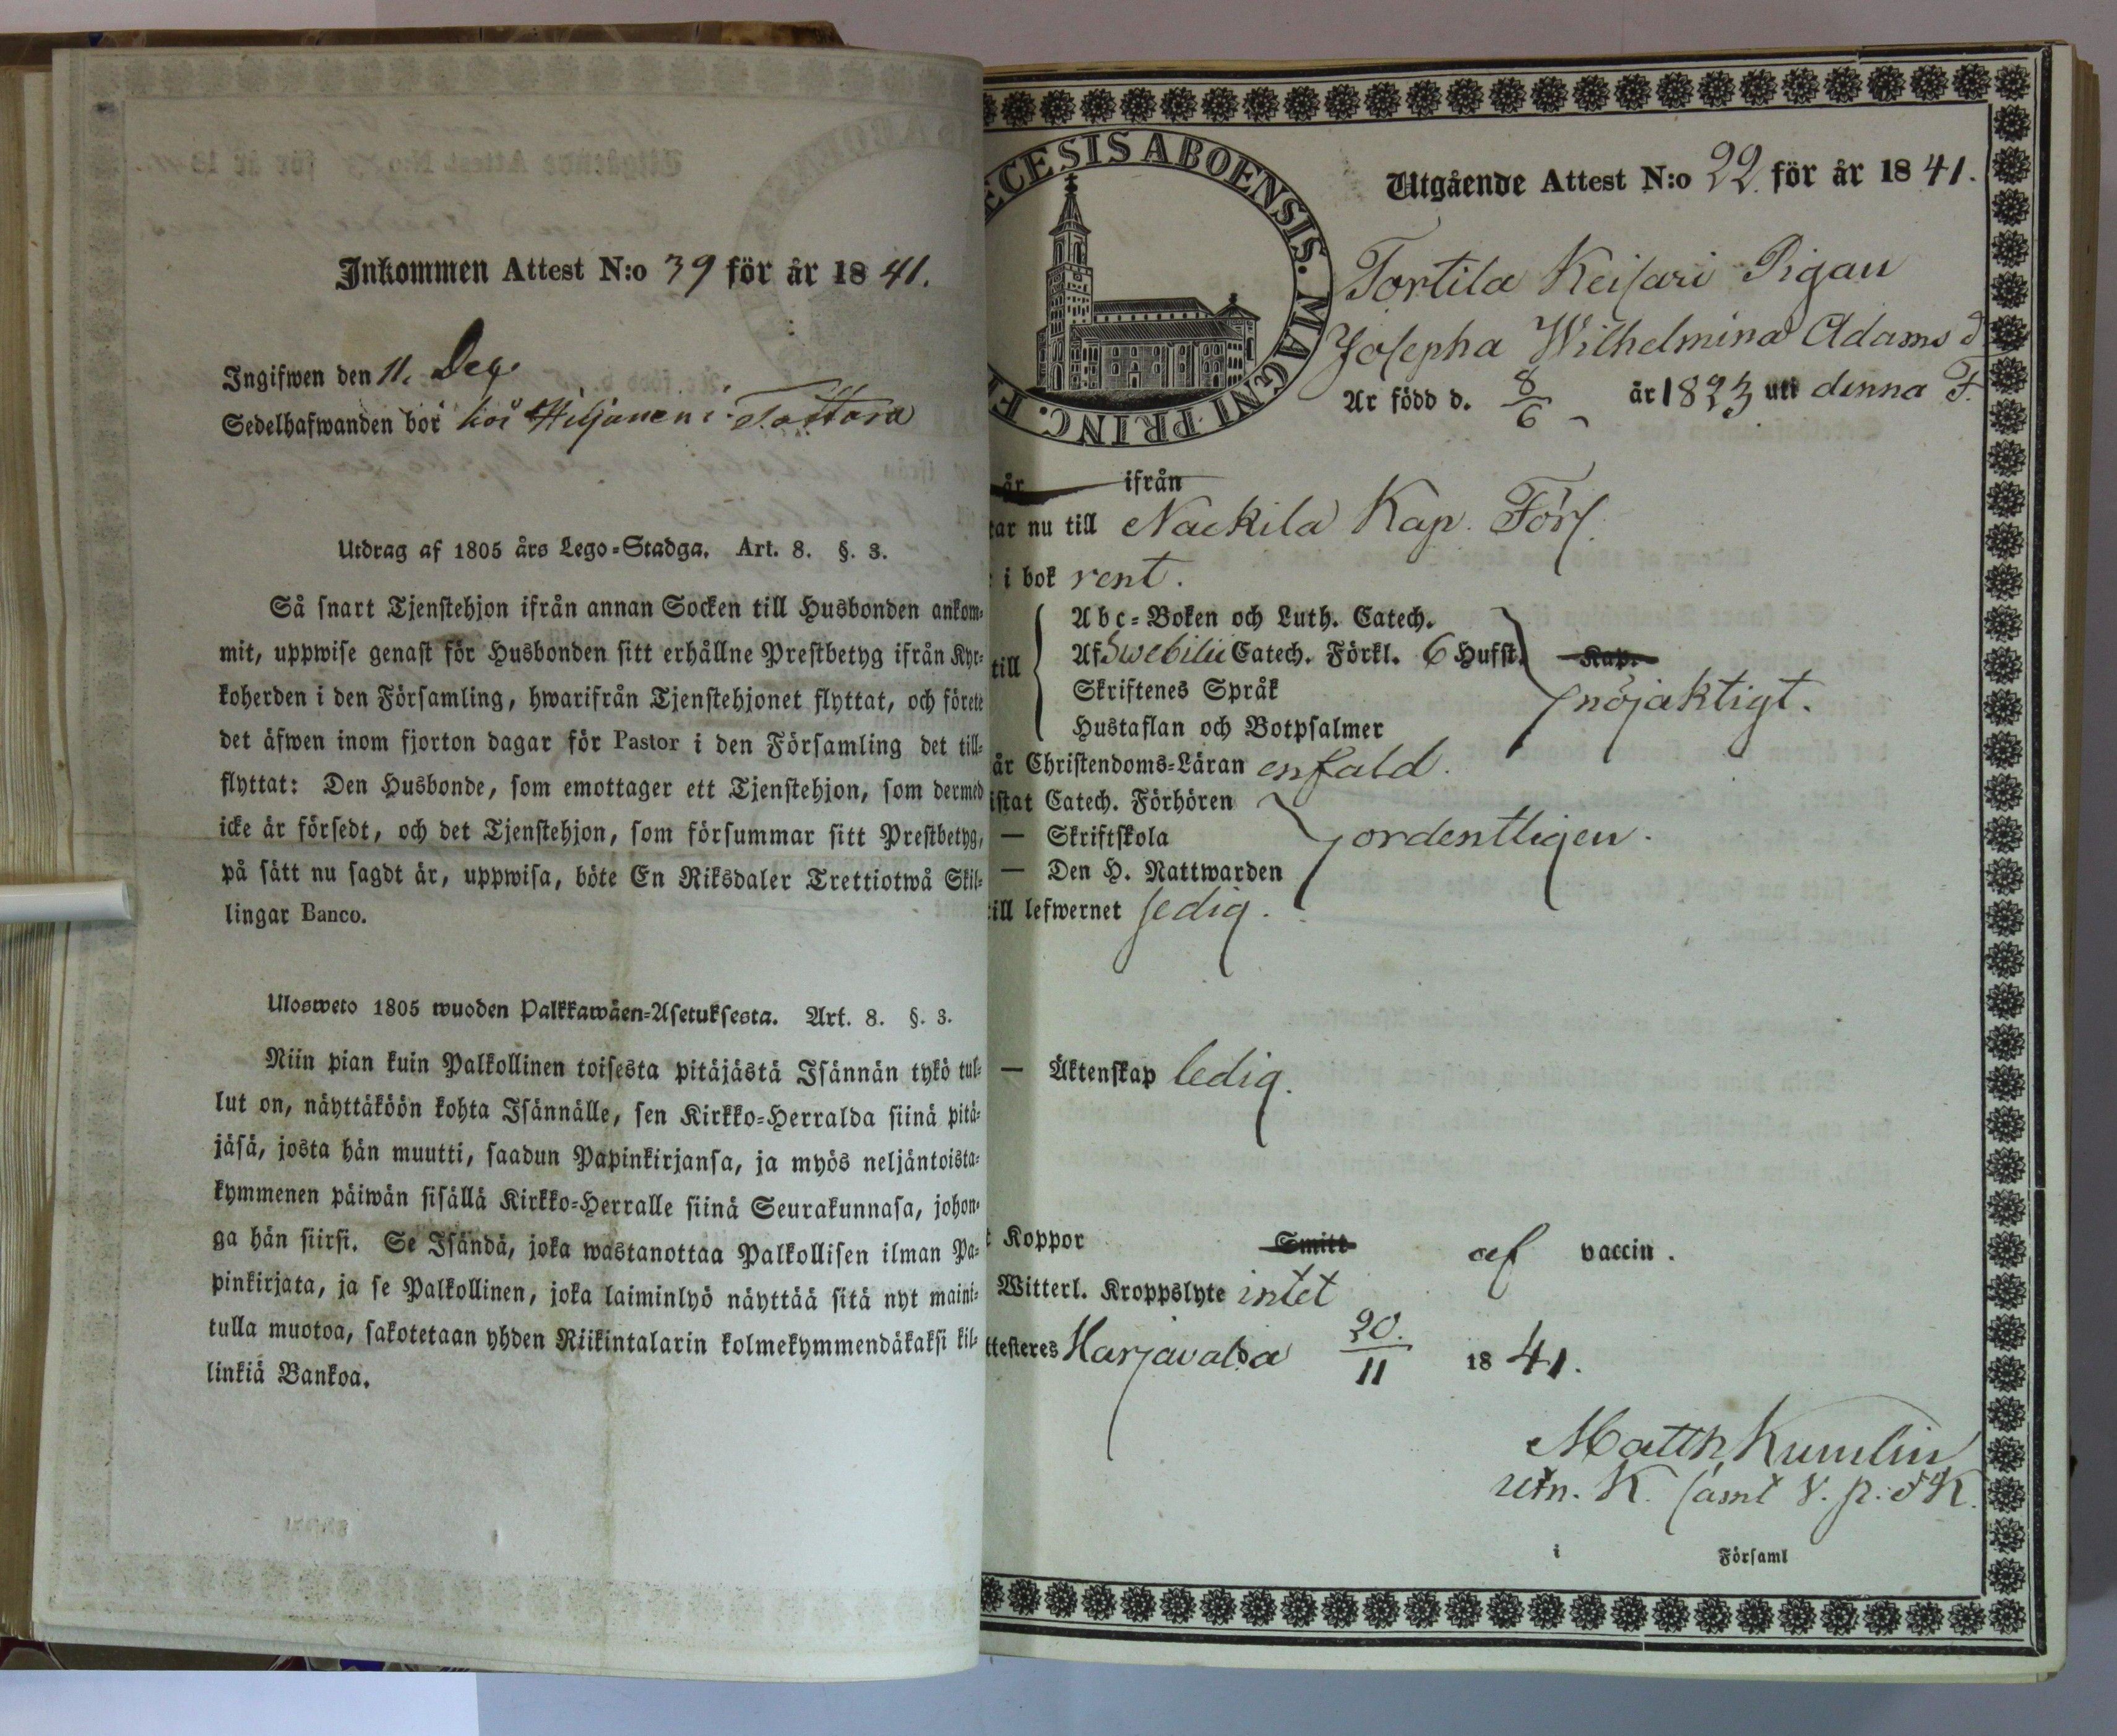 Inkommen Attest N:o 39 för år 1841.
Ingifwen den 11. Dec.
Sedelhafwanden bor hos Hiljanen i Tattara
Utdrag af 1805 års Lego-Stadga. Art. 8. §. 3.
Så snart Tjenstehjon ifrån annan Socken till Husbonden ankom-
mit, uppwise genast för Husbonden sitt erhållne Prestbetyg ifrån Kyr-
koherden i den Församling, hwarifrån Tjenstehjonet flyttat, och förete
det äfwen inom fjorton dagar för Pastor i den Församling det till-
flyttat: Den Husbonde, som emottager ett Tjenstehjon, som dermed
icke är försedt, och det Tjenstehjon, som försummar sitt Prestbetyg,
på sätt nu sagdt är, uppwisa, böte En Riksdaler Trettiotwå Skil-
lingar Banco.
Ulosweto 1805 wuoden Palkkawäen-Asetuksesta. Art. 8. §. 3.
Niin pian kuin Palkollinen toisesta pitäjästä Isännän tykö tul-
lut on, näyttäköön kohta Isännälle, sen Kirkko-Herralda siinä pitä-
jäsä, josta hän muutti, saadun Papinkirjansa, ja myös neljäntoista-
kymmenen päiwän sisällä Kirkko-Herralle siinä Seurakunnasa, johon-
ga hän siirsi. Se Isändä, joka wastanottaa Palkollisen ilman Pa-
pinkirjata, ja se Palkollinen, joka laiminlyö näyttää sitä nyt maini-
tulla muotoa, sakotetaan yhden Riikintalarin kolmekymmendäkaksi kil-
linkiä Bankoa.
ECESIS ABOENSIS. MAGNI PRINC. F
Utgående Attest N:o 22. för år 1841.
Tortila Keisari Pigan
Josepha Wilhelmina Adams d
Är född d. 8/6 år 1823 uti denna F.
år ifrån
tar nu till Nackila Kap. Förs.
i bok rent.
till
Abc-Boken och Luth. Catech.
Af Swebilii Catech. Förkl. 6 Hufst. Kap.
Skriftenes Språk nöjaktigt.
Hustaflan och Botpsalmer
år Christendoms-Läran enfald.
istat Catech. Förhören
— Skriftskola ordentligen.
— Den H. Nattwarden
till lefwernet sedig.
— Äktenskap ledig.
t Koppor Smitt af vaccin.
Witterl. Kroppslyte intet
ttesteres Harjavalda 20./11 1841.
Matth Kumlin
utn. K. samt V. p. o K.
i Församl